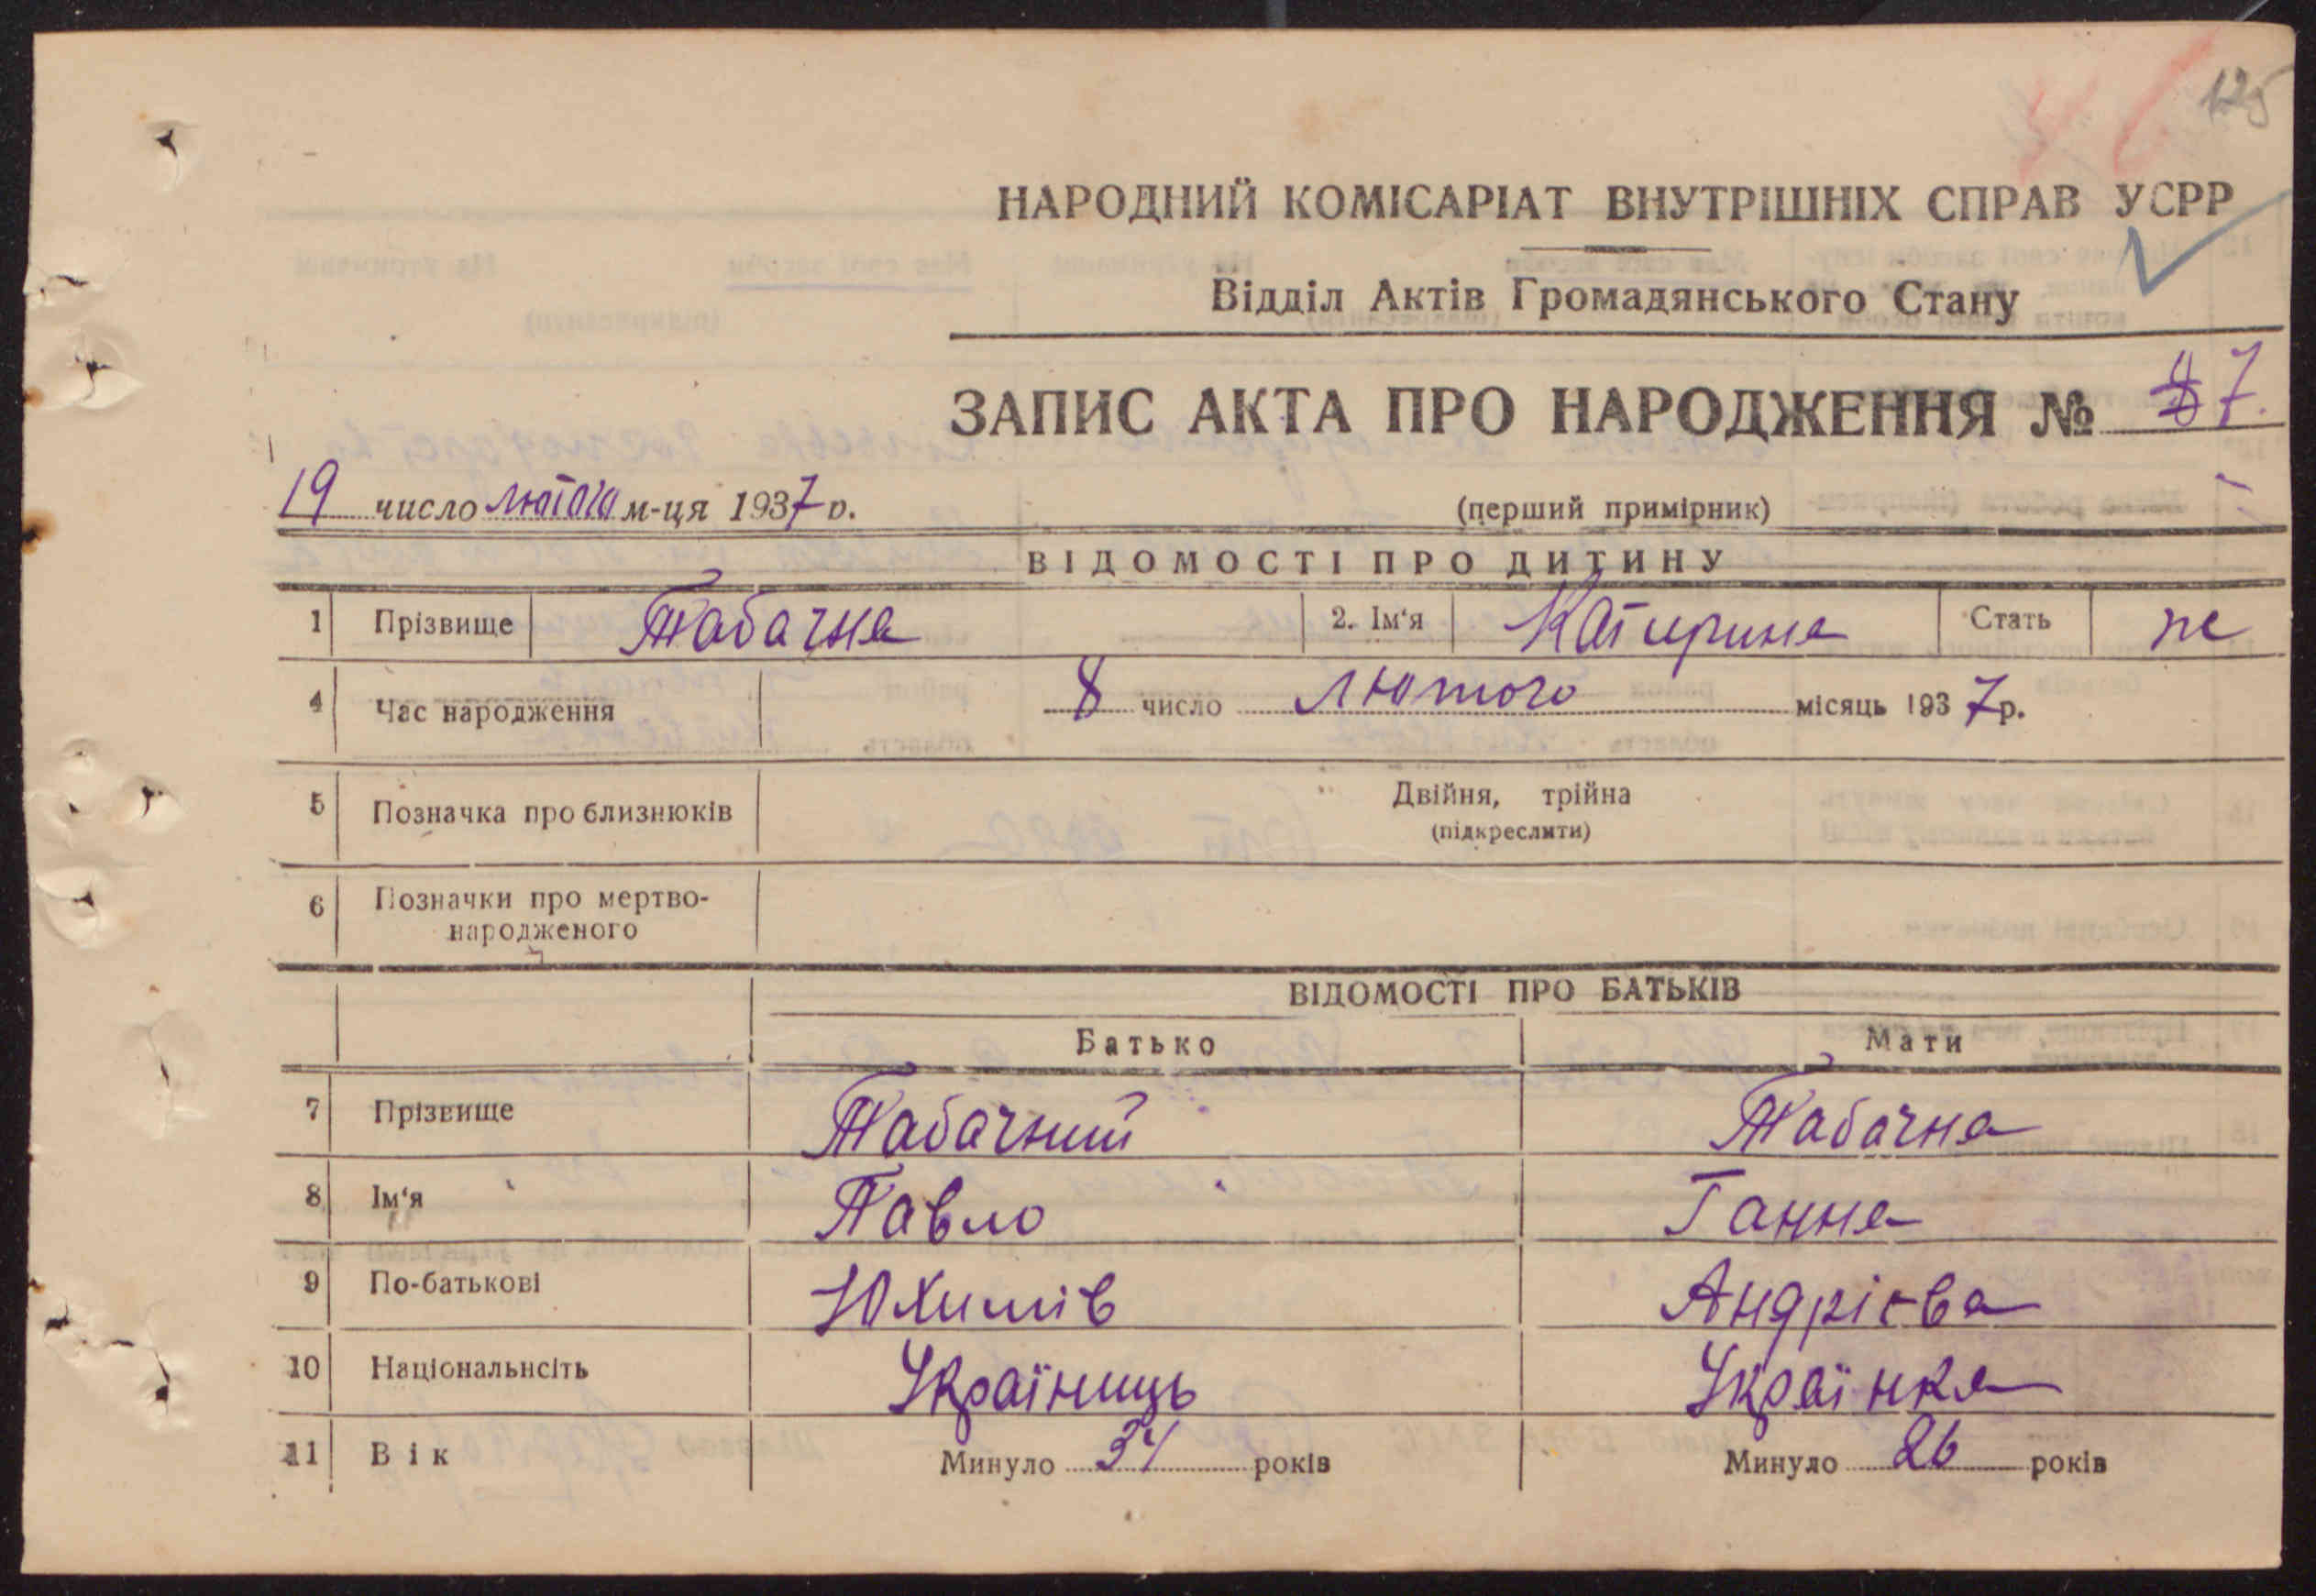 125
НАРОДНИЙ КОМІСАРІАТ ВНУТРІШНІХ СПРАВ УСРР
Відділ Актів Громадянського Стану
ЗАПИС АКТА ПРО НАРОДЖЕННЯ №
19 число лютого м-ця 1937 р.
(перший примірник)
ВІДОМОСТІ ПРО ДИТИНУ
1 Прізвище Табачна 2. Ім'я Катирина Стать
4 Час народження 8 число лютого місяць 1937 р.
5 Позначка про близнюків Двійня, трійна
(підкреслити)
6 Позначки про мертво-
народженого
ВІДОМОСТІ ПРО БАТЬКІВ
Батько Мати
7 Прізвище Табачний Табачна
8 Ім'я Павло Ганна
9 По-батькові Юхимів Андрієва
10 Національнсіть Україниць Українка
11 Вік Минуло 34 років Минуло 26 років